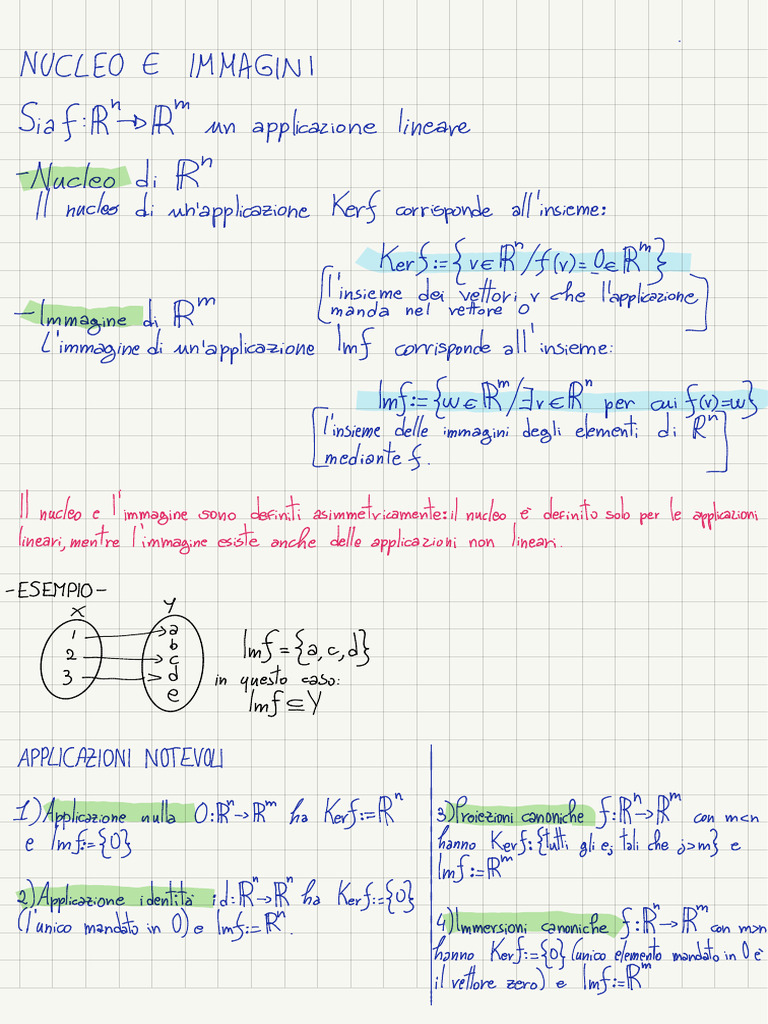 NUCLEO E IMMAGINI
Sia f: ℝⁿ→ℝᵐ un applicazione lineare
- Nucleo di ℝⁿ
Il nucleo di un'applicazione Kerf corrisponde all'insieme:
Kerf:={v∈ℝⁿ/f(v)=0∈ℝᵐ}
[l'insieme dei vettori v che l'applicazione
manda nel vettore 0]
- Immagine di ℝᵐ
L'immagine di un'applicazione Imf corrisponde all'insieme:
Imf:={w∈ℝᵐ/∃v∈ℝⁿ per cui f(v)=w}
[l'insieme delle immagini degli elementi di ℝⁿ
mediante f.]
Il nucleo e l'immagine sono definiti asimmetricamente: il nucleo è definito solo per le applicazioni
lineari, mentre l'immagine esiste anche delle applicazioni non lineari.
-ESEMPIO-
X
Y
1
2
3
a
b
c
d
e
Imf={a,c,d}
in questo caso:
Imf⊆Y
APPLICAZIONI NOTEVOLI
1) Applicazione nulla 0:ℝⁿ→ℝᵐ ha Kerf:=ℝⁿ
e Imf:={0}
2) Applicazione identità id:ℝⁿ→ℝⁿ ha Kerf:={0}
(l'unico mandato in 0) e Imf:=ℝⁿ.
3) Proiezioni canoniche f:ℝⁿ→ℝᵐ con m<n
hanno Kerf:{tutti gli eⱼ tali che j>m} e
Imf:=ℝᵐ
4) Immersioni canoniche f:ℝⁿ→ℝᵐ con m>n
hanno Kerf:={0} (unico elemento mandato in 0 è
il vettore zero) e Imf:=ℝᵐ